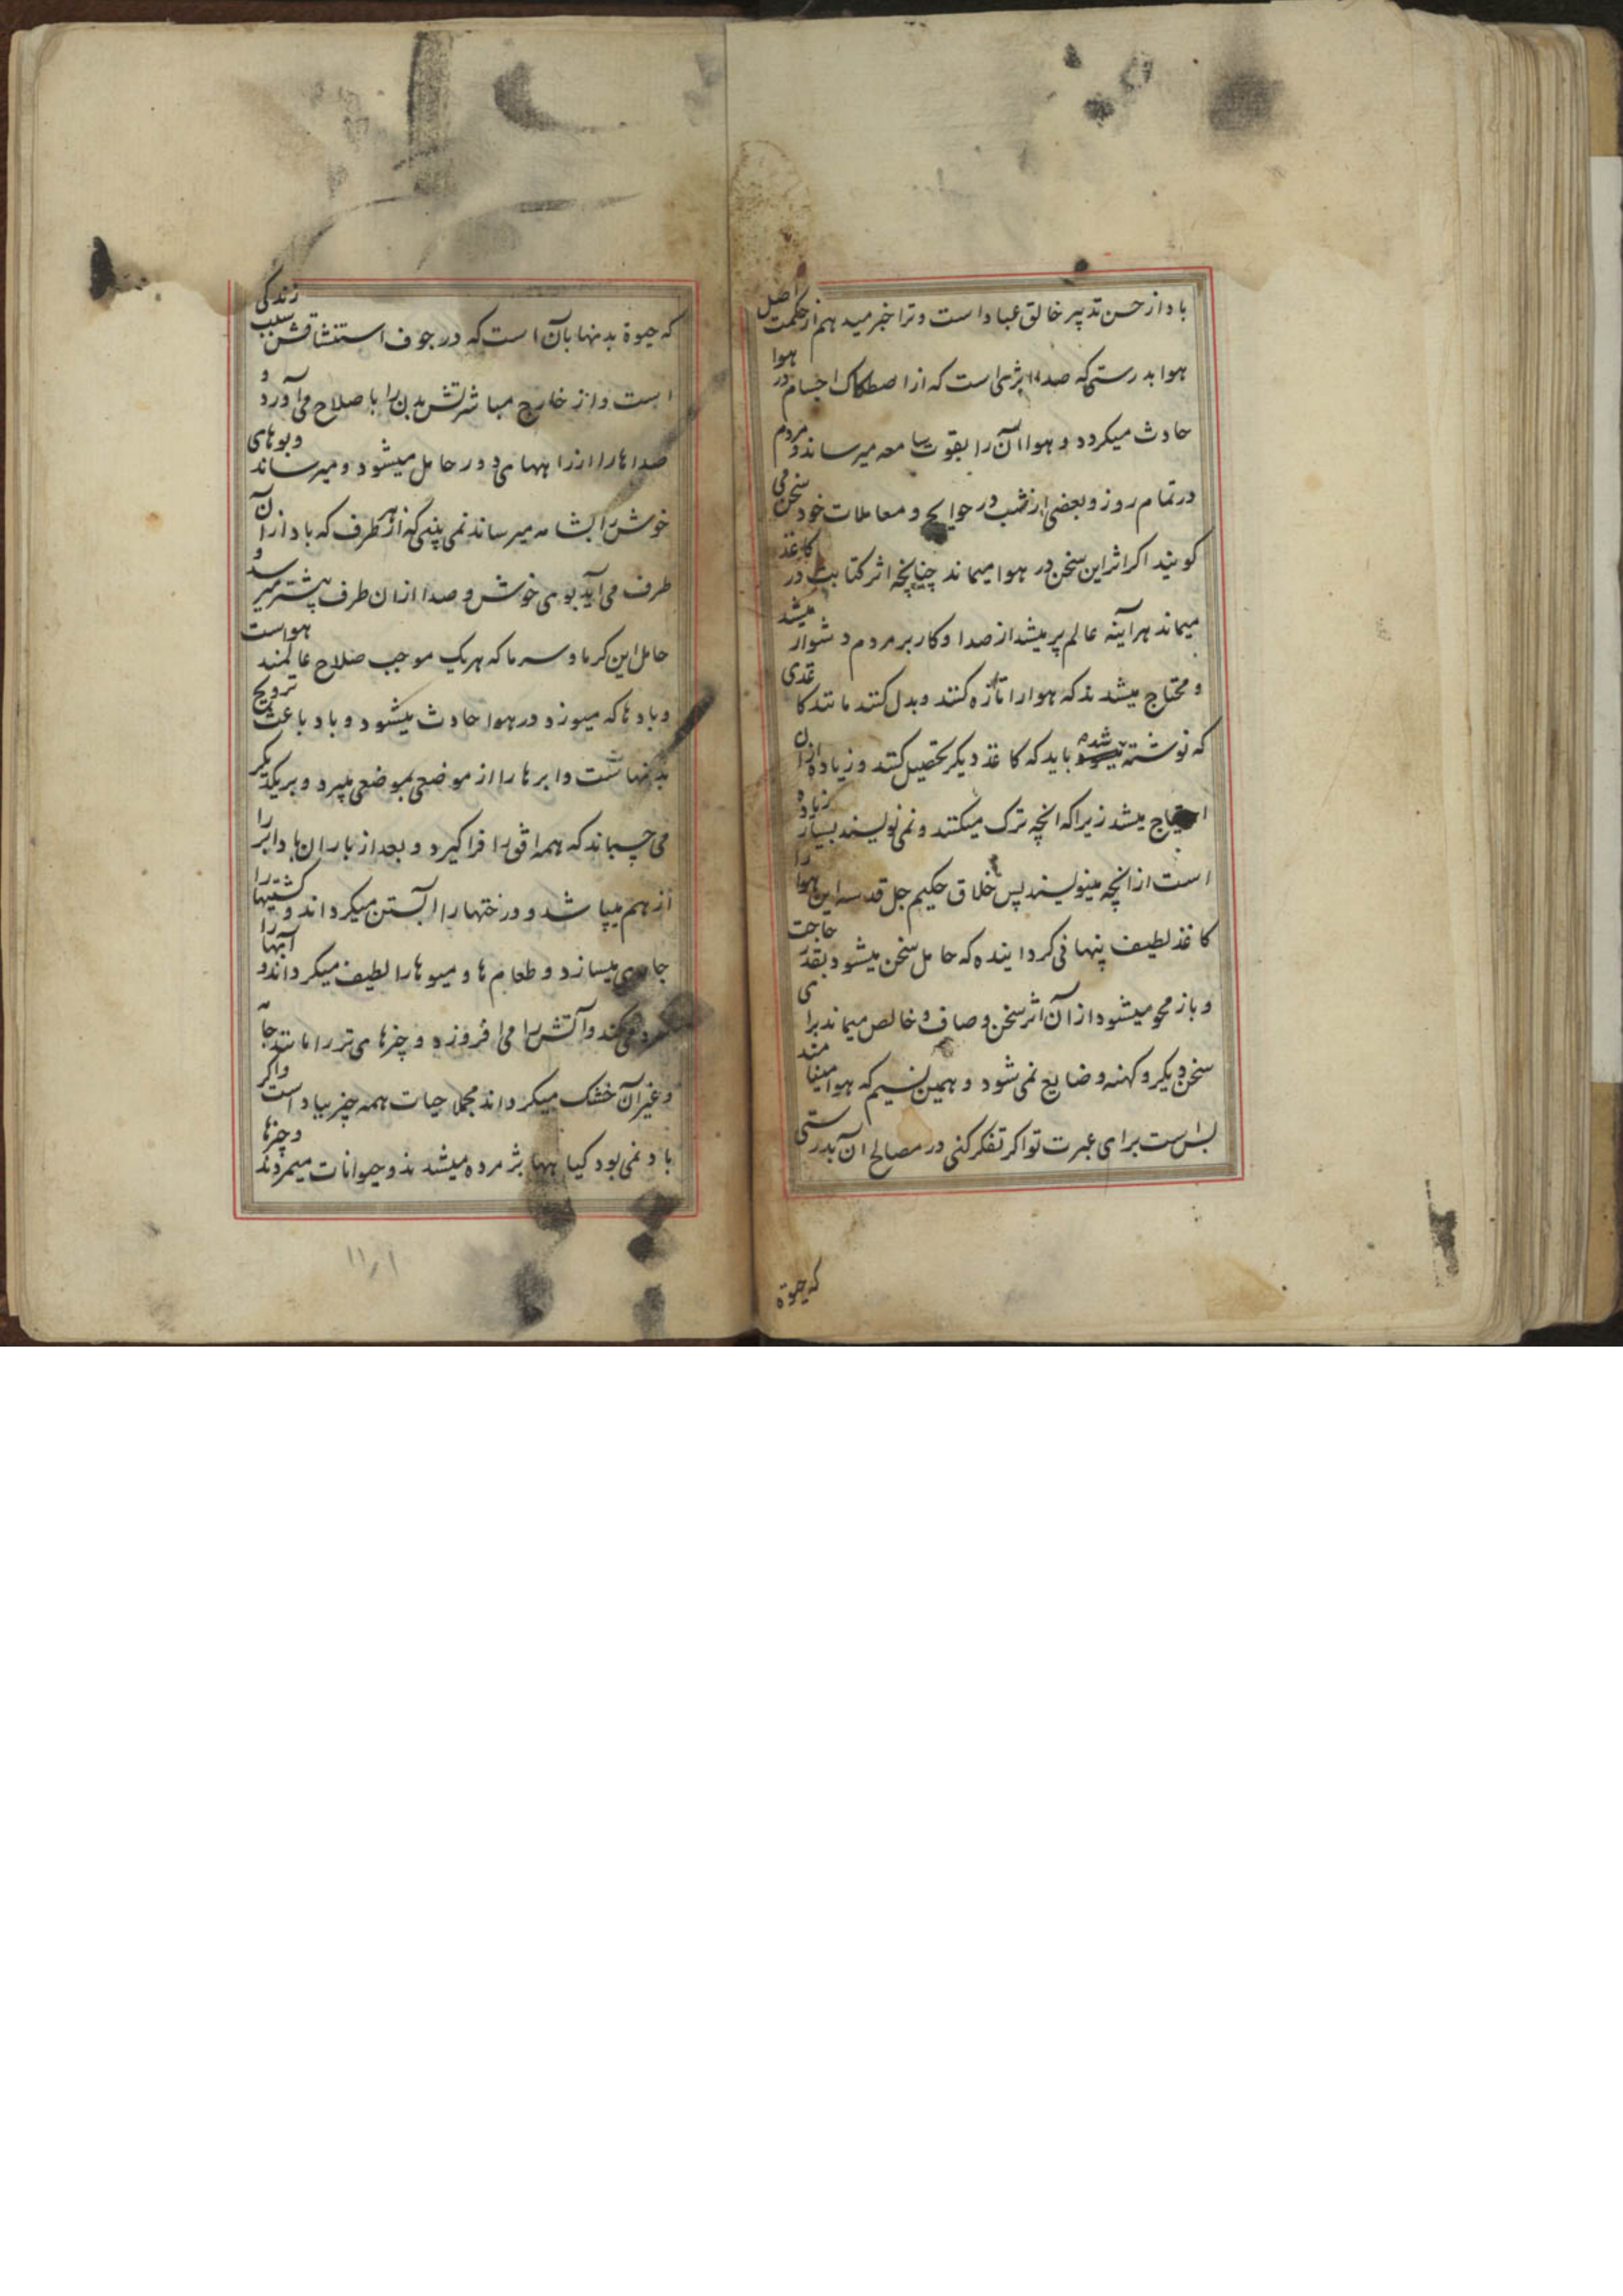 باد از حسن تدبیر خالق عباد است و ترا خبر میدهم از حکمت اصل
هوا بدرستی که صدا اثری است که از اصطکاک اجسام در هوا
حادث میکردد و هوا آن را بقوت سامعه میرساند و مردم
در تمام روز و بعضی از شب در حوایج و معاملات خود سخن می
کویند اکر اثر این سخن در هوا میماند چنانچه اثر کتابت در کاغذ
میماند هرآینه عالم پر میشد از صدا و کار بر مردم دشوار میشد
و محتاج میشدند که هوا را تازه کنند و بدل کنند مانند کاغذی
که نوشته شده باید که کاغذ دیکر تحصیل کنند و زیاده از آن
احتیاج میشد زیرا که انچه ترک میکنند و نمی نویسند بسیار زیاده
است از انچه مینویسند پس خلاق حکیم جل قدسه این هوا را
کاغذ لطیف پنهانی کردانیده که حامل سخن میشود بقدر حاجت
و باز محو میشود از آن اثر سخن و صاف و خالص میماند برای
سخن دیکر و کهنه و ضایع نمی شود و همین نسیم که هوا مینامند
بس است برای عبرت تو اکر تفکر کنی در مصالح آن بدرستی
که حیوة
که حیوة بدنها بآن است که در جوف استنشاقش سبب زندکی
است و از خارج مباشرتش بدن را باصلاح می آورد و
صداها را از راههای دور حامل میشود و میرساند و بوهای
خوش را بشامه میرساند نمی بینی که از هر طرف که باد از آن
طرف می آید بوی خوش و صدا ازان طرف بیشتر میرسد و
حامل این کرما و سرما که هر یک موجب صلاح عالمند هواست
و بادها که میوزد در هوا حادث میشود و باد باعث ترویح
بدنهاست و ابرها را از موضعی بموضعی میبرد و بر یکدیکر
می چسباند که همه افق را فرا کیرد و بعد از باران ها و ابر را
از هم میپاشد و درختها را آبستن میکرداند و کشتیها را
جاری میسازد و طعام ها و میوها را لطیف میکرداند و آبها را
سرد میکند و آتش را می افروزد و چیزهای تر را مانند جامه
و غیر آن خشک میکرداند مجملا حیات همه چیز بباد است و اکر
باد نمی بود کیاهها پژمرده میشدند و حیوانات میمردند و چیزها